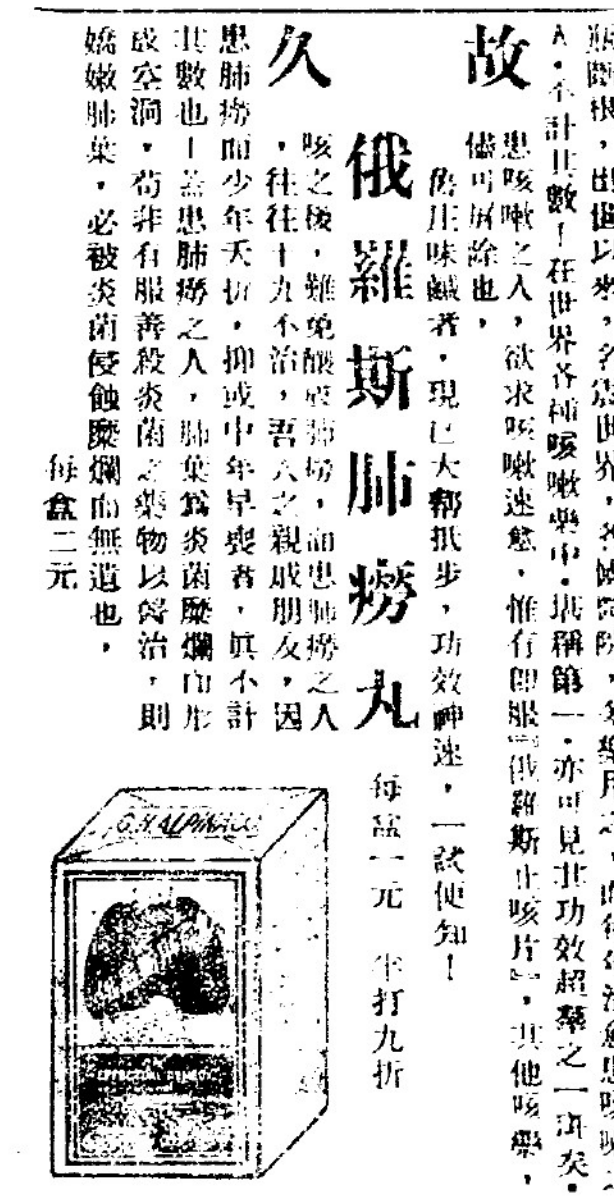 斷根,出世以來,名震世界,
人,不計其數!在世界各種咳嗽藥中,堪稱第一,亦可見其功效超羣之一斑矣。
故患咳嗽之人,欲求咳嗽速愈,惟有卽服『俄羅斯止咳片』,其他咳藥,
儘可屏除也,
味鹹者,現已大幫抵步,功效神速,一試便知!
俄羅斯肺癆丸 每盒一元 半打九折
久咳之後,難免釀成肺癆,而患肺癆之人
,往往十九不治,吾人之親戚朋友,因
患肺癆而少年夭折,抑或中年早喪者,眞不計
其數也!蓋患肺癆之人,肺葉爲炎菌糜爛而形
成空洞,苟非有服善殺炎菌之藥物以醫治,則
嬌嫩肺葉,必被炎菌侵蝕糜爛而無遺也,
每盒二元